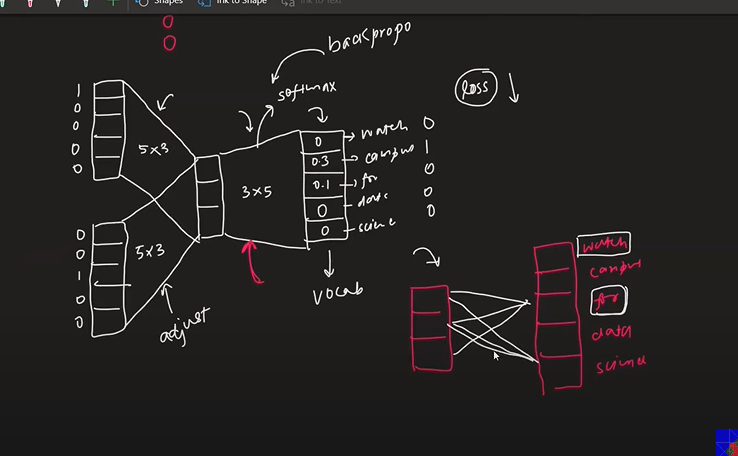 Shapes
Ink to Shape
Ink to Text
0
0
backpropo
softmax
loss
1
0
0
0
0
5x3
3x5
0
0.3
0.1
0
0
watch 0
campus 1
for 0
data 0
science 0
0
0
1
0
0
5x3
adjust
vocab
watch
campus
for
data
science